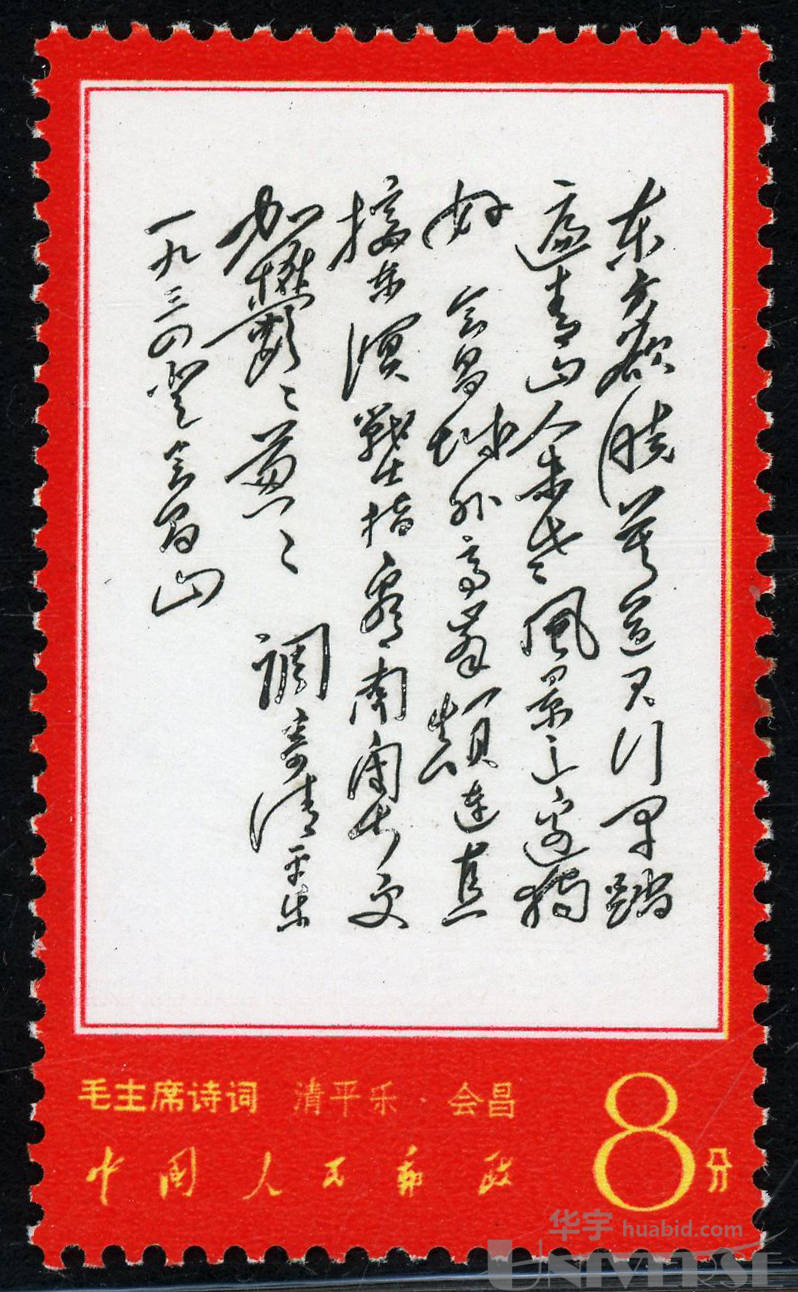 东方欲晓莫道君行早踏
遍青山人未老風景这边独
好 会昌城外高峰颠连直
接东溟戰士指看南粤更
加鬱〻葱〻 调寄清平乐
一九三四登会昌山
毛主席诗词 清平乐·会昌
中国人民邮政
8分
华宇 huabid.com
UNIVERSE